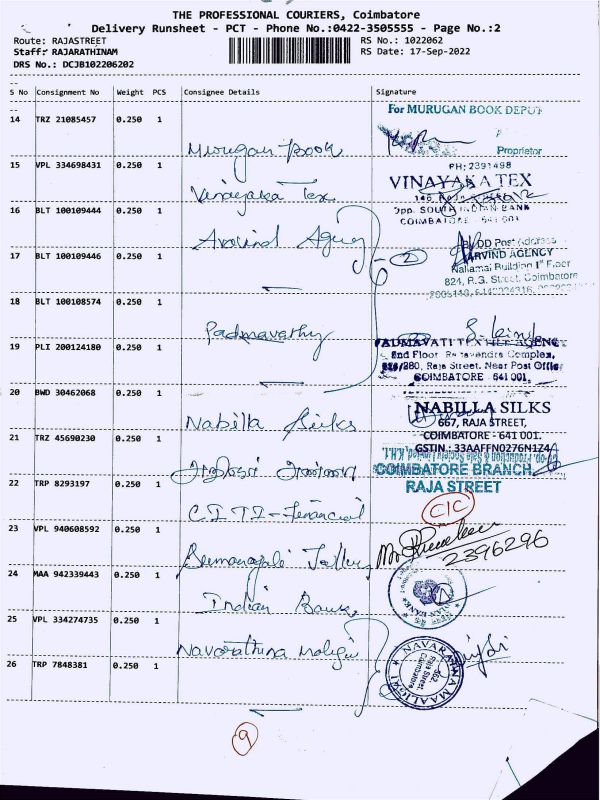 THE PROFESSIONAL COURIERS, Coimbatore
Delivery Runsheet - PCT - Phone No.:0422-3505555 - Page No.:2
Route: RAJASTREET
RS No.: 1022062
Staff: RAJARATHINAM
RS Date: 17-Sep-2022
DRS No.: DCJB102206202
S No Consignment No Weight PCS Consignee Details Signature
14 TRZ 21085457 0.250 1
For MURUGAN BOOK DEPOT
Murugan Book
Proprietor
15 VPL 334698431 0.250 1
PH: 2391498
VINAYAKA TEX
Vinayaka Tex
Opp. SOUTH INDIAN BANK
COIMBATORE - 641 001
16 BLT 100109444 0.250 1
Aravind Agency
2
Post Address
ARVIND AGENCY
17 BLT 100109446 0.250 1
Nallamai Building 1st Floor
824, R.G. Street, Coimbatore
18 BLT 100108574 0.250 1
Padmavathy
PADMAVATI TEXTILE AGENCY
19 PLI 200124180 0.250 1
2nd Floor Raghavendra Complex,
Raja Street, Near Post Office
COIMBATORE - 641 001.
20 BWD 30462068 0.250 1
Nabilla Silks
NABILLA SILKS
667, RAJA STREET,
COIMBATORE - 641 001.
21 TRZ 45690230 0.250 1
GSTIN : 33AAFFN0276N1Z4
COIMBATORE BRANCH
RAJA STREET
22 TRP 8293197 0.250 1
C.I.T.I - Financial
CIC
23 VPL 940608592 0.250 1
2396296
24 MAA 942339443 0.250 1
Indian Bank
25 VPL 334274735 0.250 1
Navarathna Maligai
NAVARATHNA MAALIGAI
Raja Street
Coimbatore
26 TRP 7848381 0.250 1
9